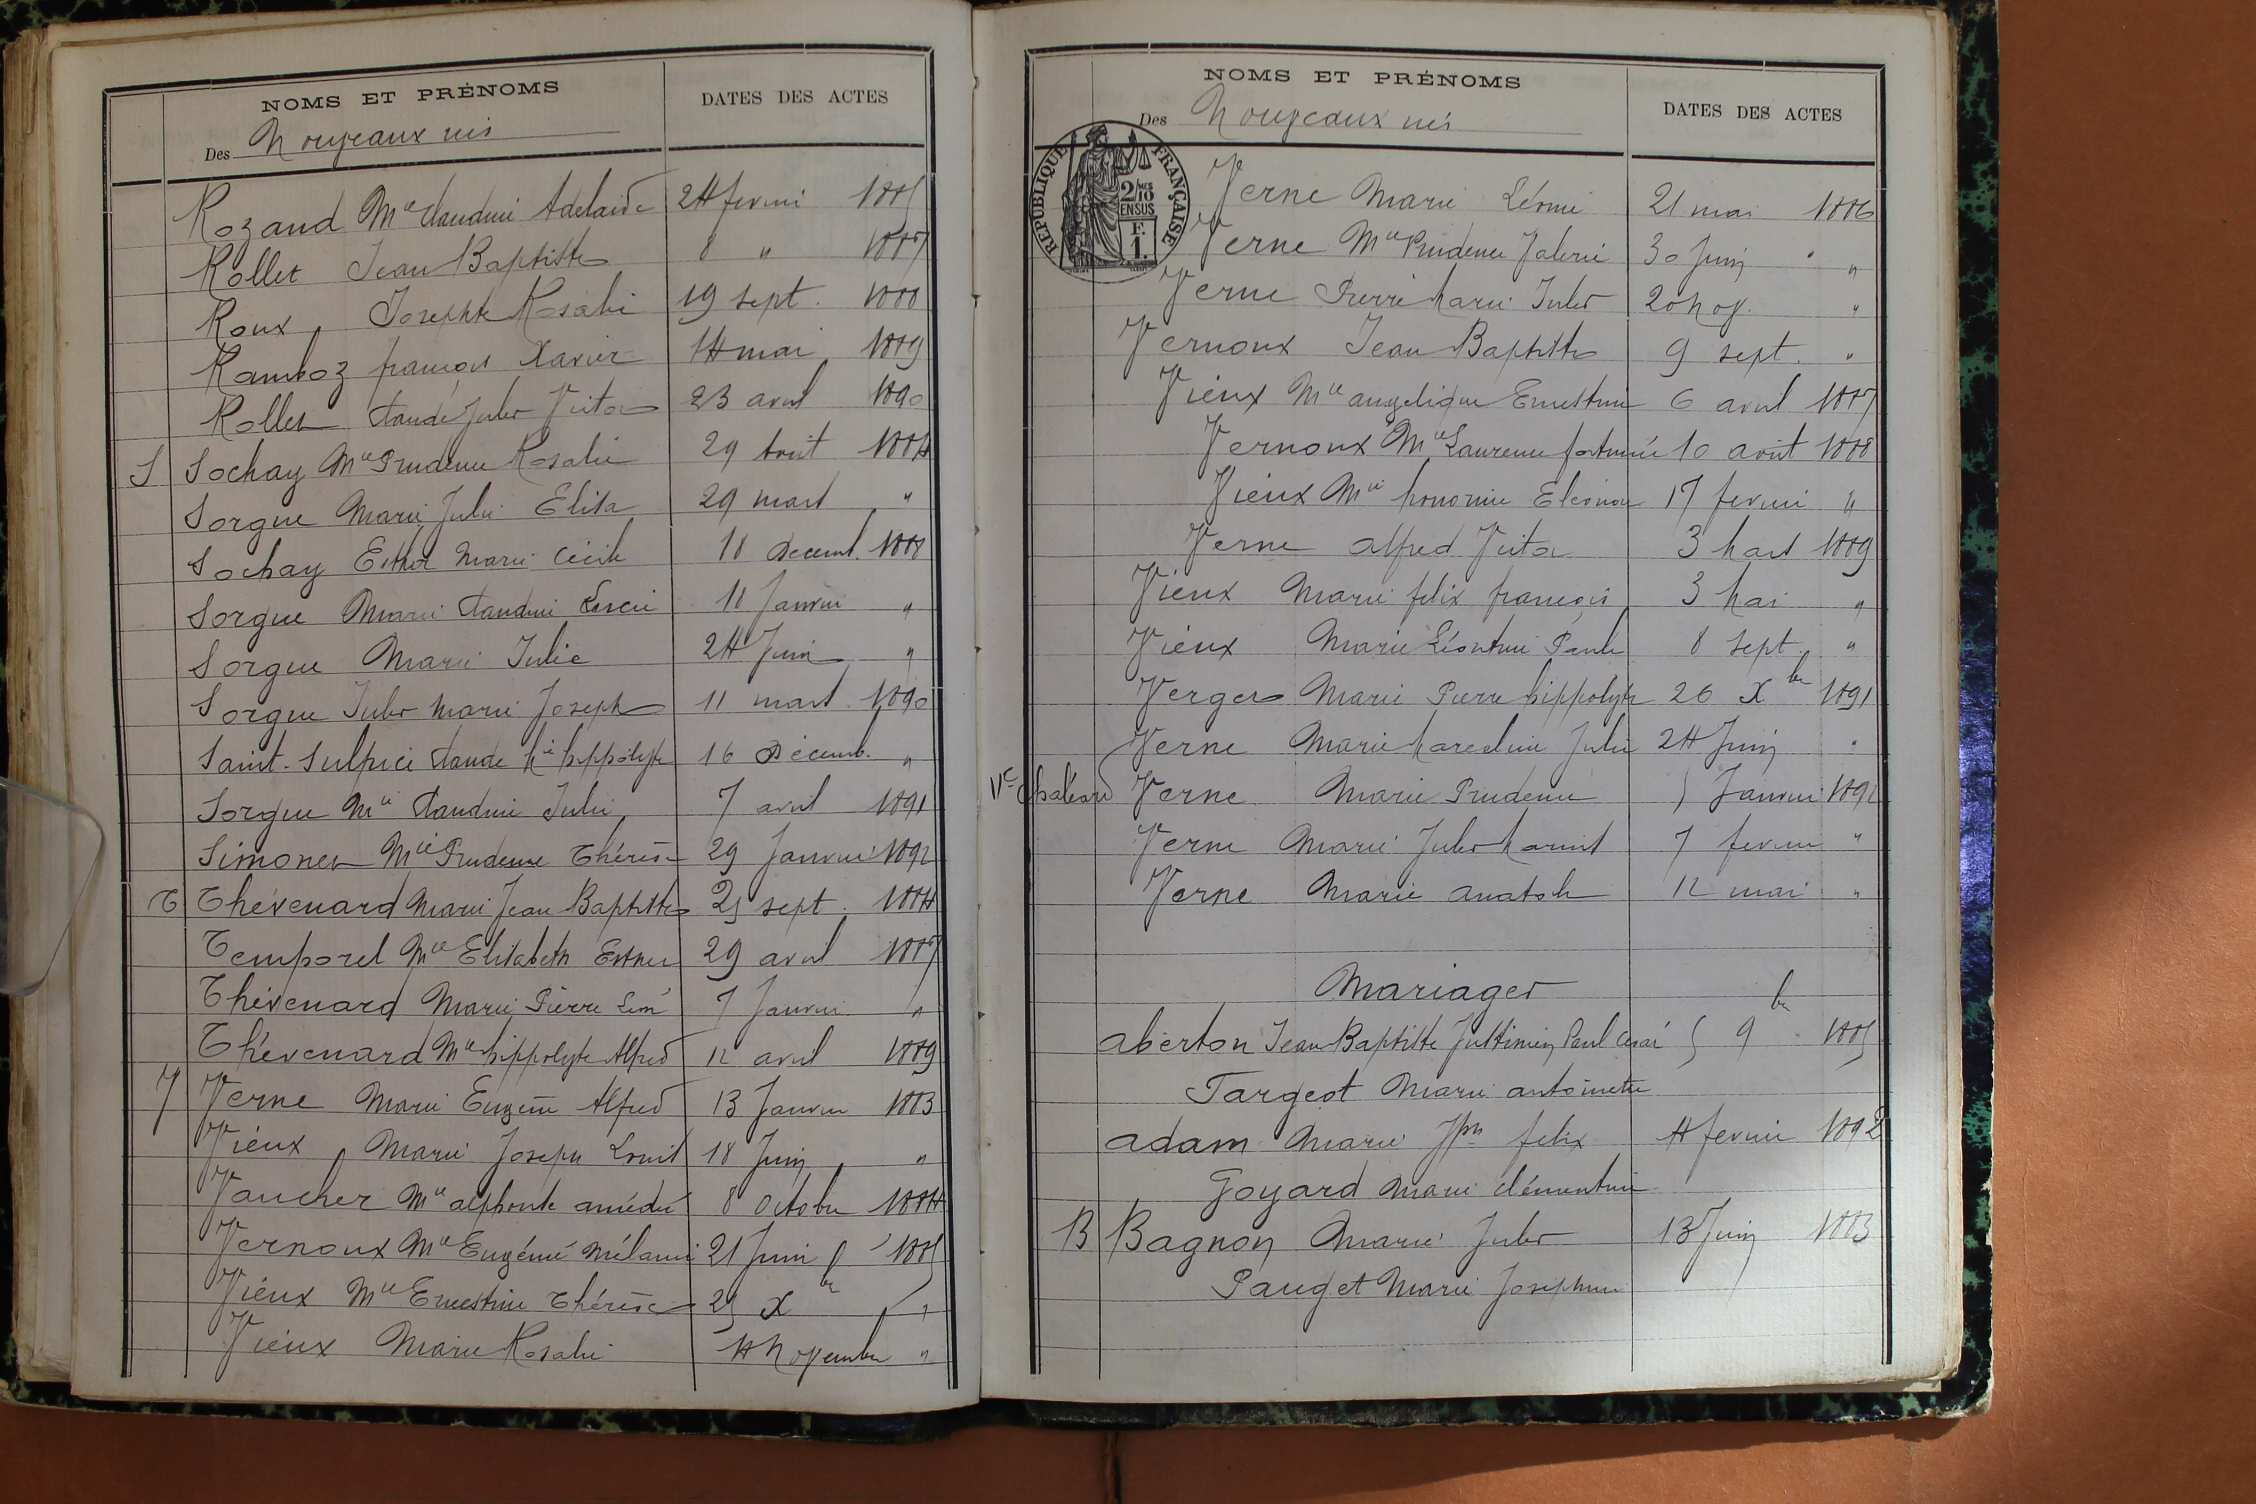 NOMS ET PRÉNOMS
DATES DES ACTES
Des Nouveaux nés
Rozand Mie Claudine Adelaïde 24 fevrier 1885
Rollet Jean Baptiste 8 " 1887
Roux Joseph Rosalie 19 sept. 1888
Ramboz françois Xavier 14 mai 1889
Rollet Claude Jules Victor 23 avril 1890
S Sochay Mie Prudence Rosalie 29 Août 1884
Sorgue Marie Julie Elisa 29 mars "
Sochay Esther Marie Cécile 18 Decemb. 1888
Sorgue Marie Claudine 18 Janvier "
Sorgue Marie Julie 24 Juin "
Sorgue Jules Marie Joseph 11 mars 1890
Saint-Sulpice Claude Mie hippolyte 16 Décemb. "
Sorgue Mie Claudine Julie 7 avril 1891
Simonet Mie Prudence Thérèse 29 Janvier 1892
T Thévenard Marie Jean Baptiste 25 sept. 1884
Temporel Mie Elisabeth Esther 29 avril 1887
Thévenard Marie Pierre 7 Janvier "
Thévenard Mie hippolyte Alfred 12 avril 1889
V Verne Marie Eugène Alfred 13 Janvier 1883
Vieux Marie Joseph Louis 18 Juin "
Vaucher Mie alphonse amédée 8 Octobre 1884
Vernoux Mie Eugénie Mélanie 21 Juin 1885
Vieux Mie Ernestine Thérèse 25 Xbre "
Vieux Marie Rosalie 4 Novembre "
NOMS ET PRÉNOMS
DATES DES ACTES
Des Nouveaux nés
RÉPUBLIQUE FRANÇAISE
2/10mes
EN SUS
F.
1.
Verne Marie Léonie 21 mai 1886
Verne Mie Prudence Valerie 30 Juin "
Verne Pierre Marie Jules 20 Nov. "
Vernoux Jean Baptiste 9 sept. "
Vieux Mie angelique Ernestine 6 avril 1887
Vernoux Mie Laurence fortunée 10 août 1888
Vieux Mie honorine Eléonore 17 fevrier "
Verne alfred Victor 3 Mars 1889
Vieux Marie felix françois 3 Mai "
Vieux Marie Léontine Paule 8 sept. "
Verger Marie Pierre hippolyte 26 Xbre 1891
Verne Marie Marceline Julie 24 Juin "
Vve Verne Marie Prudence 5 Janvier 1892
Verne Marie Jules 7 fevrier "
Verne Marie anatole 12 mai "
Mariages
aberton Jean Baptiste Justinien Paul César 5 9bre 1885
Targeot Marie antoinette
adam Marie Jph felix 4 fevrier 1892
Goyard Marie clémentine
B Bagnon Marie Jules 13 Juin 1883
Pauget Marie Josephine